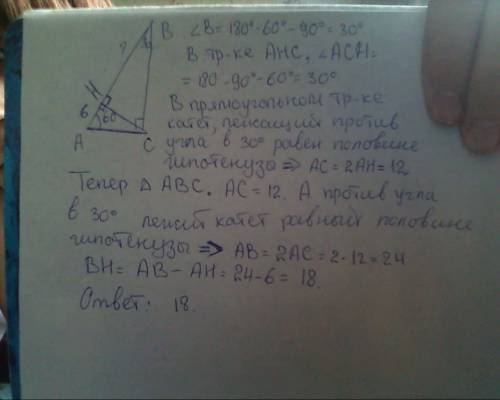 B
?
H
6
60
A
C
∠B = 180° - 60° - 90° = 30°
В тр-ке AHC, ∠ACH =
= 180 - 90° - 60° = 30°
В прямоугольном тр-ке
катет, лежащий против
угла в 30° равен половине
гипотенузы ⇒ AC = 2AH = 12.
Тепер △ ABC. AC = 12. А против угла
в 30° лежит катет равный половине
гипотенузы ⇒ AB = 2AC = 2·12 = 24
BH = AB - AH = 24 - 6 = 18.
Ответ: 18.